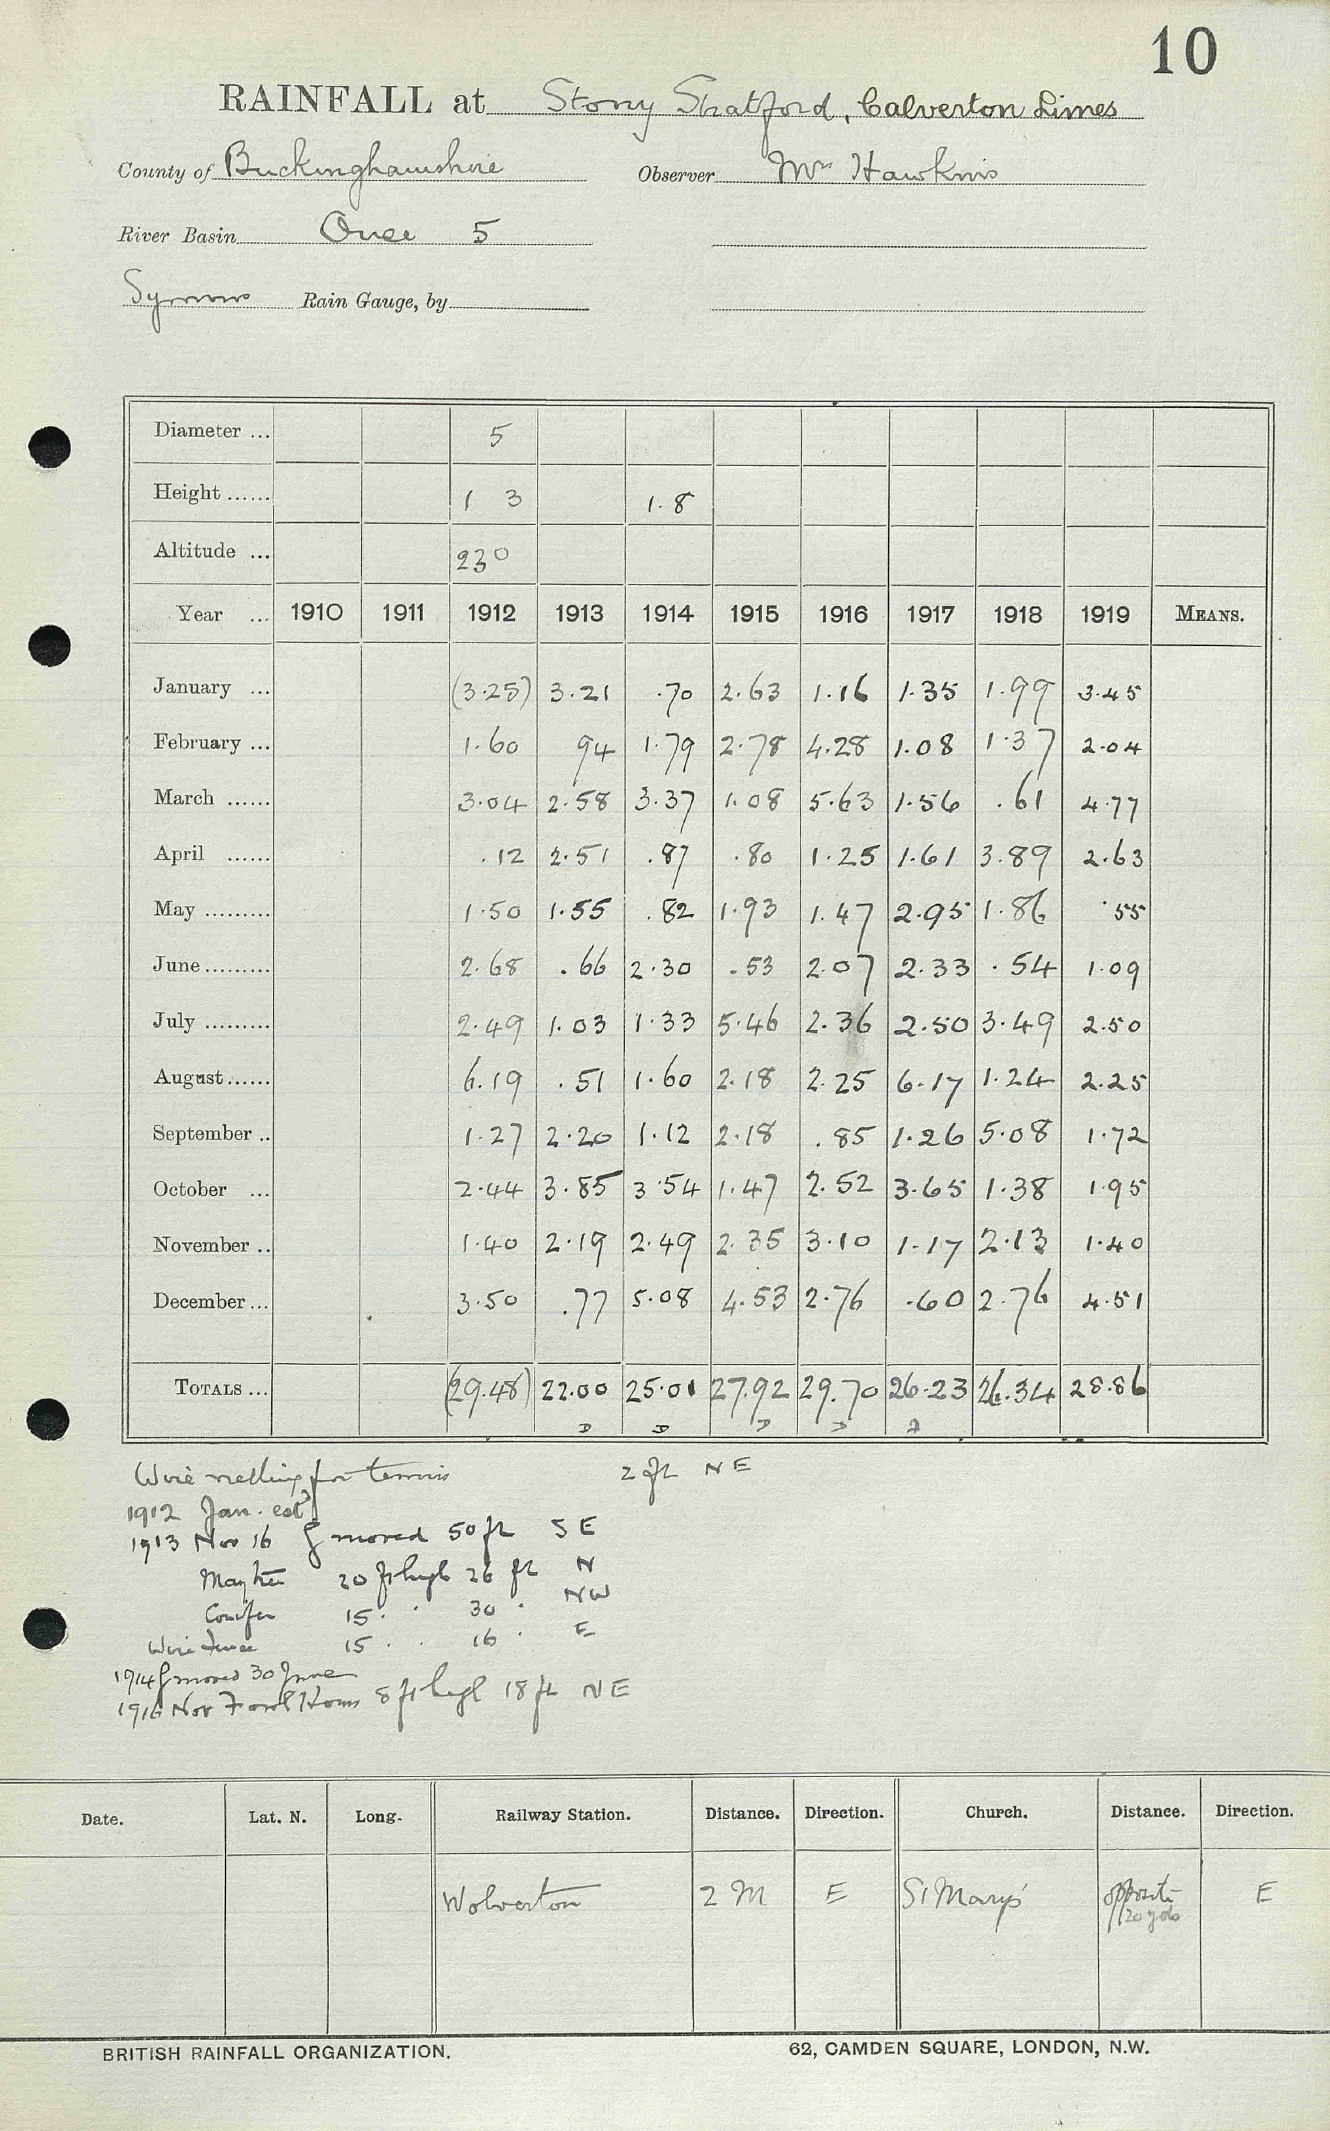 10
RAINFALL at Stony Stratford, Calverton Limes
County of Buckinghamshire Observer Mrs Hawkins
River Basin Ouse 5
Symons Rain Gauge, by
Diameter ... 5
Height ...... 1 3 1.8
Altitude ... 230
Year ... 1910 1911 1912 1913 1914 1915 1916 1917 1918 1919 MEANS.
January ... (3.25) 3.21 .70 2.63 1.16 1.35 1.99 3.45
February ... 1.60 94 1.79 2.78 4.28 1.08 1.37 2.04
March ...... 3.04 2.58 3.37 1.08 5.63 1.56 .61 4.77
April ...... .12 2.51 .87 .80 1.25 1.61 3.89 2.63
May ......... 1.50 1.55 .82 1.93 1.47 2.95 1.86 .55
June ......... 2.68 .66 2.30 .53 2.07 2.33 .54 1.09
July ......... 2.49 1.03 1.33 5.46 2.36 2.50 3.49 2.50
August ...... 6.19 .51 1.60 2.18 2.25 6.17 1.24 2.25
September .. 1.27 2.20 1.12 2.18 .85 1.26 5.08 1.72
October ... 2.44 3.85 3.54 1.47 2.52 3.65 1.38 1.95
November .. 1.40 2.19 2.49 2.35 3.10 1.17 2.13 1.40
December ... 3.50 .77 5.08 4.53 2.76 .60 2.76 4.51
TOTALS ... (29.48) 22.00 25.01 27.92 29.70 26.23 26.34 28.86
Wire netting for tennis 2 ft NE
1912 Jan. estd
1913 Nov 16 G moved 50 ft SE
May tree 20 ft high 26 ft N
Conifer 15 . . 30 . NW
Wire fence 15 . . 16 . E
1914 G moved 30 June
1916 Nov Fowl House 8 ft high 18 ft NE
Date. Lat. N. Long. Railway Station. Distance. Direction. Church. Distance. Direction.
Wolverton 2 M E St Mary's opposite E
20 yds
BRITISH RAINFALL ORGANIZATION. 62, CAMDEN SQUARE, LONDON, N.W.